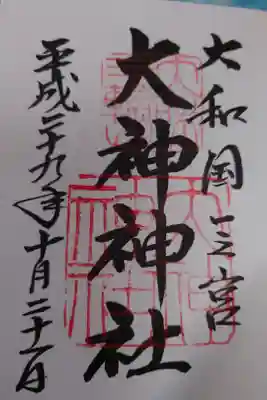 大和国一之宮
大神神社
平成二十九年十月二十一日